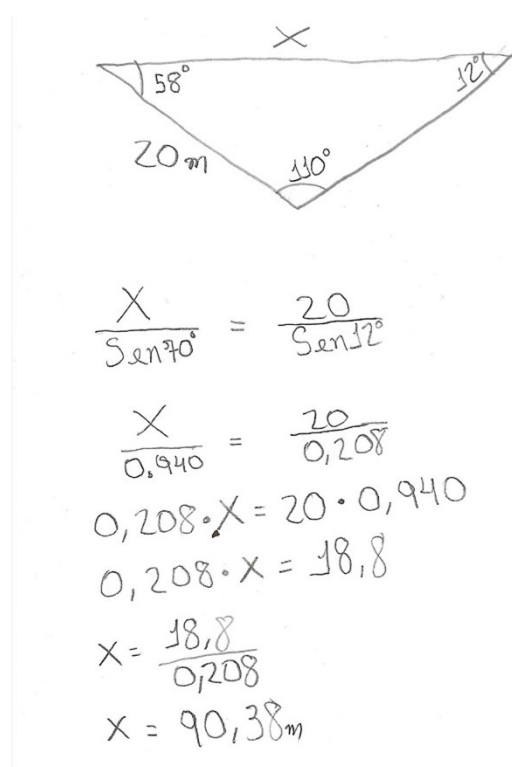 x
58° 12°
20m 110°
x/Sen70° = 20/Sen12°
x/0.940 = 20/0,208
0,208·x = 20·0,940
0,208·x = 18,8
x = 18,8/0,208
x = 90,38m